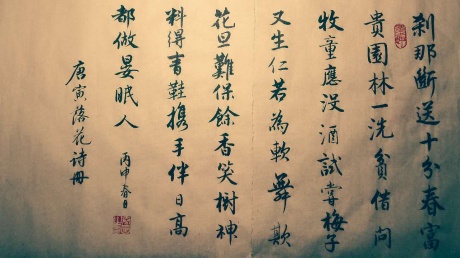 刹那斷送十分春富
貴園林一洗貧借問
牧童應没酒試嘗梅子
又生仁若為軟舞欺
花旦難保餘香笑樹神
料得青鞋携手伴日高
都做晏眠人
丙申春日
唐寅落花诗册